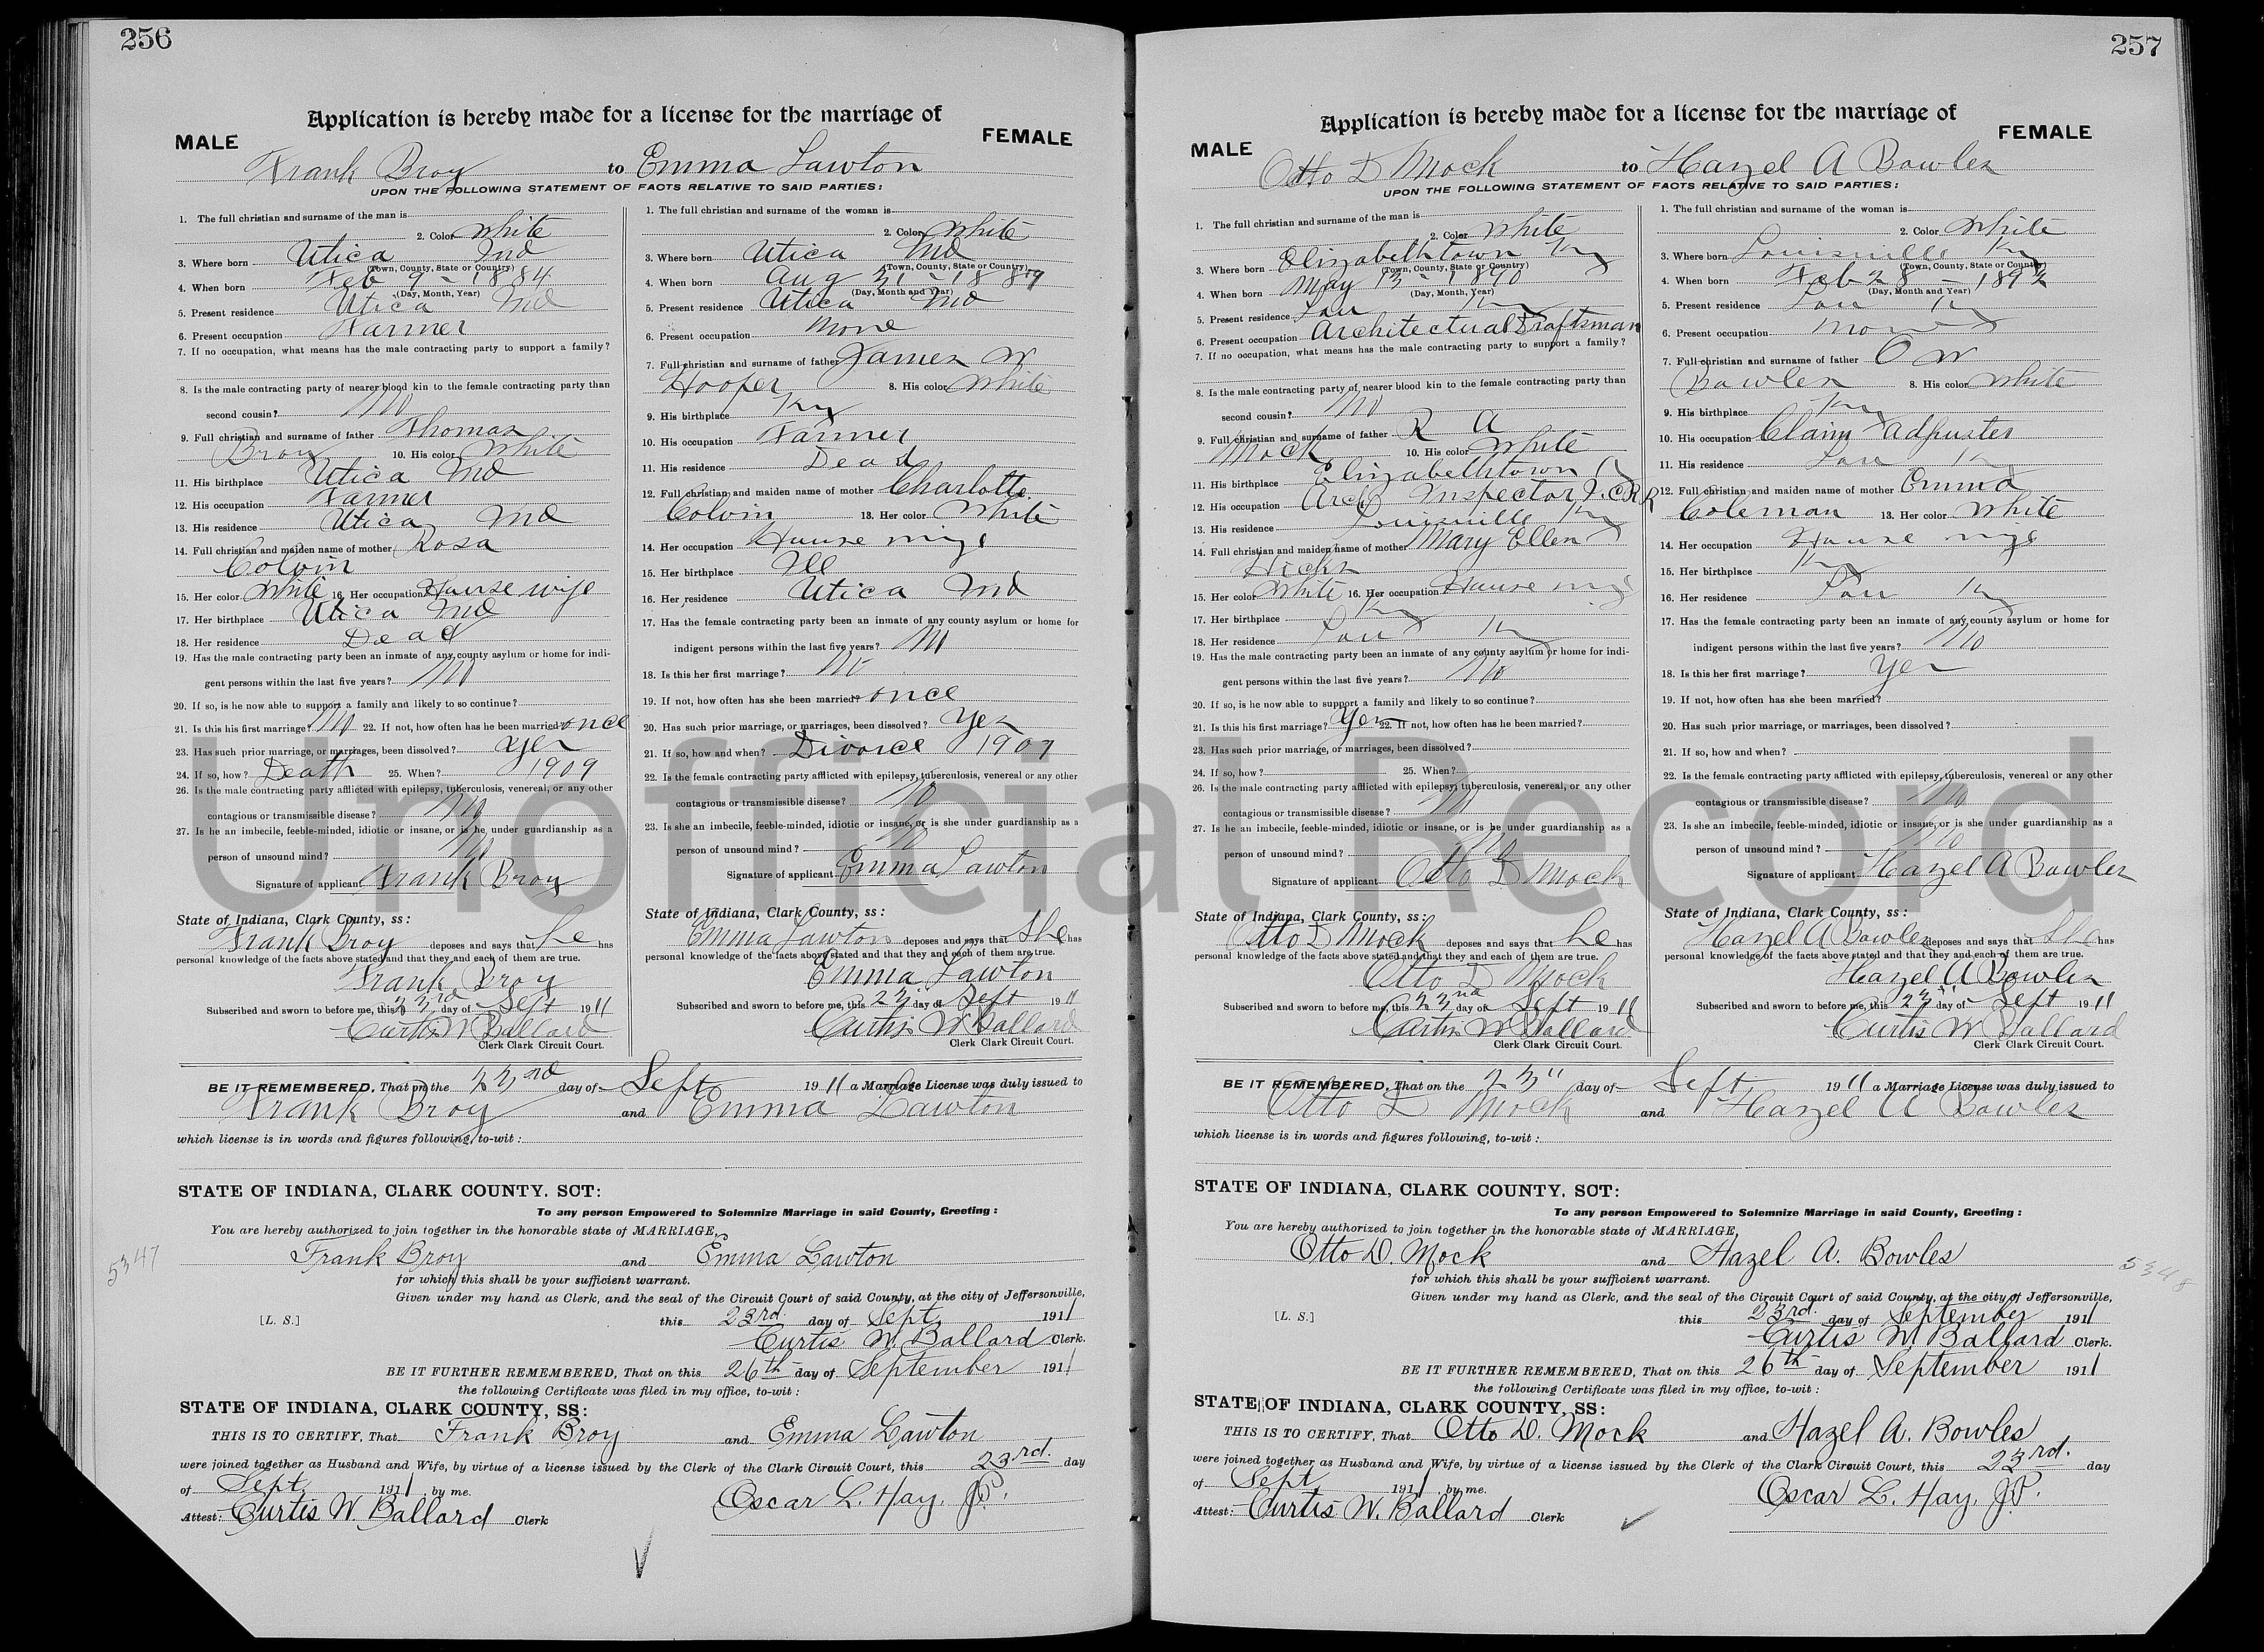 256
Application is hereby made for a license for the marriage of
MALE FEMALE
Frank Broy to Emma Lawton
UPON THE FOLLOWING STATEMENT OF FACTS RELATIVE TO SAID PARTIES:
1. The full christian and surname of the man is
2. Color White
3. Where born Utica Ind
(Town, County, State or Country)
4. When born Feb 9 - 1884
(Day, Month, Year)
5. Present residence Utica Ind
6. Present occupation Farmer
7. If no occupation, what means has the male contracting party to support a family?
8. Is the male contracting party of nearer blood kin to the female contracting party than
second cousin? No
9. Full christian and surname of father Thomas
Broy 10. His color White
11. His birthplace Utica Ind
12. His occupation Farmer
13. His residence Utica, Ind
14. Full christian and maiden name of mother Rosa
Colvin
15. Her color White 16. Her occupation House wife
17. Her birthplace Utica Ind
18. Her residence Dead
19. Has the male contracting party been an inmate of any county asylum or home for indi-
gent persons within the last five years? No
20. If so, is he now able to support a family and likely to so continue?
21. Is this his first marriage? No 22. If not, how often has he been married? once
23. Has such prior marriage, or marriages, been dissolved? Yes
24. If so, how? Death 25. When? 1909
26. Is the male contracting party afflicted with epilepsy, tuberculosis, venereal, or any other
contagious or transmissible disease? No
27. Is he an imbecile, feeble-minded, idiotic or insane, or is he under guardianship as a
person of unsound mind? No
Signature of applicant Frank Broy
State of Indiana, Clark County, ss:
Frank Broy deposes and says that he has
personal knowledge of the facts above stated and that they and each of them are true.
Frank Broy
Subscribed and sworn to before me, this 23rd day of Sept 1911
Curtis W Ballard
Clerk Clark Circuit Court.
1. The full christian and surname of the woman is
2. Color White
3. Where born Utica Ind
(Town, County, State or Country)
4. When born Aug 31 - 18
(Day, Month and Year)
5. Present residence Utica Ind
6. Present occupation None
7. Full christian and surname of father James W
Hooper 8. His color White
9. His birthplace Ky
10. His occupation Farmer
11. His residence Dead
12. Full christian and maiden name of mother Charlotte
Colvin 13. Her color White
14. Her occupation House wife
15. Her birthplace Ill
16. Her residence Utica Ind
17. Has the female contracting party been an inmate of any county asylum or home for
indigent persons within the last five years? No
18. Is this her first marriage? No
19. If not, how often has she been married? once
20. Has such prior marriage, or marriages, been dissolved? Yes
21. If so, how and when? Divorce 1907
22. Is the female contracting party afflicted with epilepsy, tuberculosis, venereal or any other
contagious or transmissible disease? No
23. Is she an imbecile, feeble-minded, idiotic or insane, or is she under guardianship as a
person of unsound mind? No
Signature of applicant Emma Lawton
State of Indiana, Clark County, ss:
Emma Lawton deposes and says that She has
personal knowledge of the facts above stated and that they and each of them are true.
Emma Lawton
Subscribed and sworn to before me, this 23 day of Sept 1911
Curtis W Ballard
Clerk Clark Circuit Court.
BE IT REMEMBERED, That on the 23rd day of Sept 1911 a Marriage License was duly issued to
Frank Broy and Emma Lawton
which license is in words and figures following, to-wit:
STATE OF INDIANA, CLARK COUNTY, SCT:
To any person Empowered to Solemnize Marriage in said County, Greeting:
You are hereby authorized to join together in the honorable state of MARRIAGE,
5347
Frank Broy and Emma Lawton
for which this shall be your sufficient warrant.
Given under my hand as Clerk, and the seal of the Circuit Court of said County, at the city of Jeffersonville,
[L. S.] this 23rd. day of Sept. 1911
Curtis W. Ballard Clerk.
BE IT FURTHER REMEMBERED, That on this 26th day of September 1911
the following Certificate was filed in my office, to-wit:
STATE OF INDIANA, CLARK COUNTY, SS:
THIS IS TO CERTIFY, That Frank Broy and Emma Lawton
were joined together as Husband and Wife, by virtue of a license issued by the Clerk of the Clark Circuit Court, this 23rd. day
of Sept. 1911, by me.
Oscar L. Hay, J.P.
Attest: Curtis W. Ballard Clerk
257
Application is hereby made for a license for the marriage of
MALE FEMALE
Otto D Mock to Hazel A Bowles
UPON THE FOLLOWING STATEMENT OF FACTS RELATIVE TO SAID PARTIES:
1. The full christian and surname of the man is
2. Color White
3. Where born Elizabethtown Ky
(Town, County, State or Country)
4. When born May 13 - 1890
(Day, Month, Year)
5. Present residence Lou Ky
6. Present occupation Architectural Draftsman
7. If no occupation, what means has the male contracting party to support a family?
8. Is the male contracting party of nearer blood kin to the female contracting party than
second cousin? No
9. Full christian and surname of father R A
Mock 10. His color White
11. His birthplace Elizabethtown Ky
12. His occupation Arch Inspector I.C.R.R
13. His residence Louisville Ky
14. Full christian and maiden name of mother Mary Ellen
Hicks
15. Her color White 16. Her occupation House wife
17. Her birthplace Ky
18. Her residence Lou Ky
19. Has the male contracting party been an inmate of any county asylum or home for indi-
gent persons within the last five years? No
20. If so, is he now able to support a family and likely to so continue?
21. Is this his first marriage? Yes 22. If not, how often has he been married?
23. Has such prior marriage, or marriages, been dissolved?
24. If so, how? 25. When?
26. Is the male contracting party afflicted with epilepsy, tuberculosis, venereal, or any other
contagious or transmissible disease? No
27. Is he an imbecile, feeble-minded, idiotic or insane, or is he under guardianship as a
person of unsound mind? No
Signature of applicant Otto D Mock
State of Indiana, Clark County, ss:
Otto D Mock deposes and says that he has
personal knowledge of the facts above stated and that they and each of them are true.
Otto D Mock
Subscribed and sworn to before me, this 23nd day of Sept 1911
Curtis W Ballard
Clerk Clark Circuit Court.
1. The full christian and surname of the woman is
2. Color White
3. Where born Louisville Ky
(Town, County, State or Country)
4. When born Feb 28 - 189
(Day, Month and Year)
5. Present residence Lou Ky
6. Present occupation None
7. Full christian and surname of father O W
Bowles 8. His color White
9. His birthplace Ky
10. His occupation Claim Adjuster
11. His residence Lou Ky
12. Full christian and maiden name of mother Emma
Coleman 13. Her color White
14. Her occupation House wife
15. Her birthplace Ky
16. Her residence Lou Ky
17. Has the female contracting party been an inmate of any county asylum or home for
indigent persons within the last five years? No
18. Is this her first marriage? Yes
19. If not, how often has she been married?
20. Has such prior marriage, or marriages, been dissolved?
21. If so, how and when?
22. Is the female contracting party afflicted with epilepsy, tuberculosis, venereal or any other
contagious or transmissible disease? No
23. Is she an imbecile, feeble-minded, idiotic or insane, or is she under guardianship as a
person of unsound mind? No
Signature of applicant Hazel A Bowles
State of Indiana, Clark County, ss:
Hazel A Bowles deposes and says that She has
personal knowledge of the facts above stated and that they and each of them are true.
Hazel A Bowles
Subscribed and sworn to before me, this 23" day of Sept 1911
Curtis W Ballard
Clerk Clark Circuit Court.
BE IT REMEMBERED, That on the 23" day of Sept 1911 a Marriage License was duly issued to
Otto D Mock and Hazel A Bowles
which license is in words and figures following, to-wit:
STATE OF INDIANA, CLARK COUNTY, SCT:
To any person Empowered to Solemnize Marriage in said County, Greeting:
You are hereby authorized to join together in the honorable state of MARRIAGE,
Otto D. Mock and Hazel A. Bowles
5348
for which this shall be your sufficient warrant.
Given under my hand as Clerk, and the seal of the Circuit Court of said County, at the city of Jeffersonville,
[L. S.] this 23rd. day of September 1911
Curtis W. Ballard Clerk.
BE IT FURTHER REMEMBERED, That on this 26th day of September 1911
the following Certificate was filed in my office, to-wit:
STATE OF INDIANA, CLARK COUNTY, SS:
THIS IS TO CERTIFY, That Otto D. Mock and Hazel A. Bowles
were joined together as Husband and Wife, by virtue of a license issued by the Clerk of the Clark Circuit Court, this 23rd. day
of Sept. 1911, by me.
Oscar L. Hay, J.P.
Attest: Curtis W. Ballard Clerk
Unofficial Record